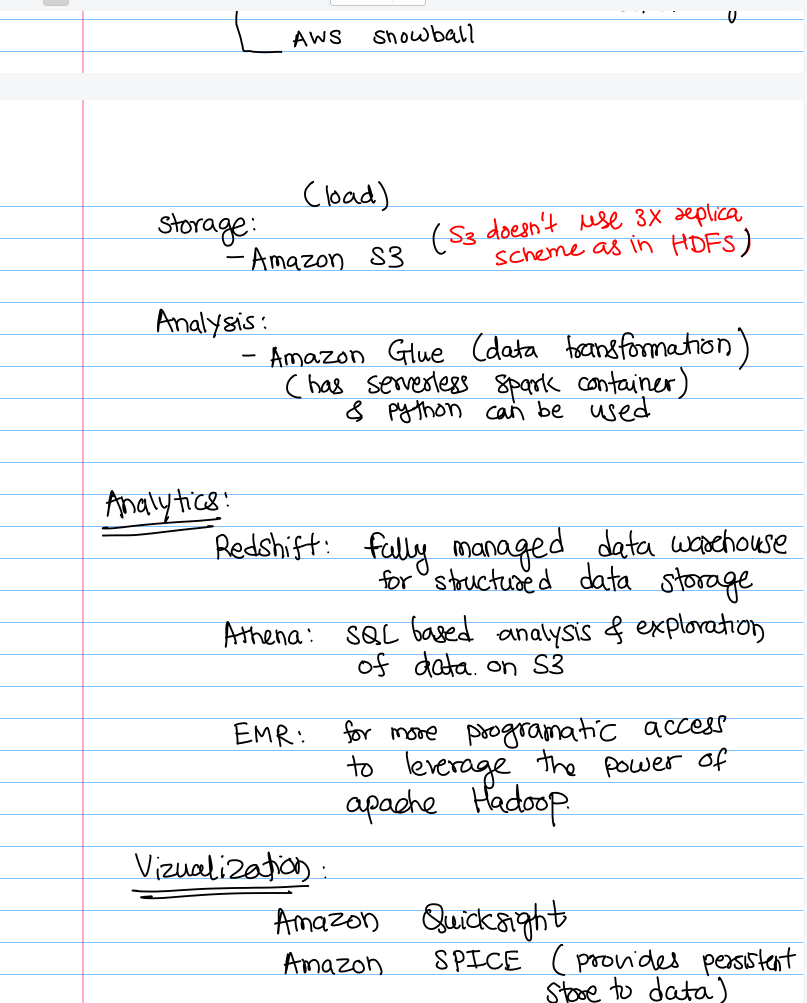 AWS Snowball
(load)
Storage:
- Amazon S3 (S3 doesn't use 3X replica
scheme as in HDFS)
Analysis:
- Amazon Glue (data transformation)
(has serverless spark container)
& python can be used
Analytics:
Redshift: fully managed data warehouse
for structured data storage
Athena: SQL based analysis & exploration
of data. on S3
EMR: for more programatic access
to leverage the power of
apache Hadoop.
Vizualization:
Amazon Quicksight
Amazon SPICE (provides persistent
store to data)